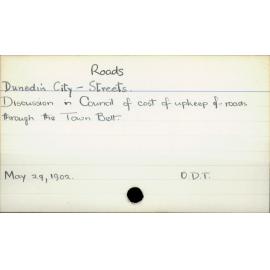 Roads
Dunedin City - Streets.
Discussion in Council of cost of upkeep of roads
through the Town Belt.
May 29, 1902. O.D.T.